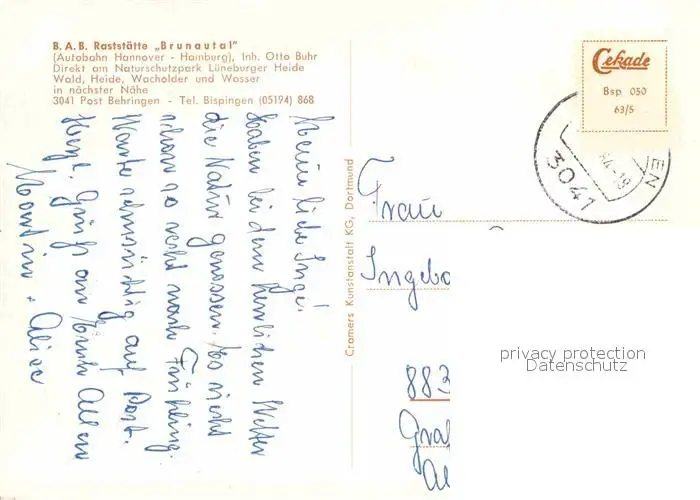 B. A. B. Raststätte „Brunautal"
(Autobahn Hannover - Hamburg), Inh. Otto Buhr
Direkt am Naturschutzpark Lüneburger Heide
Wald, Heide, Wacholder und Wasser
in nächster Nähe
3041 Post Behringen - Tel. Bispingen (05194) 868
Cekade
Bsp. 050
63/5
3041
EN
Meine liebe Inge!
Haben bei dem herrlichen Wetter
die Natur genossen. Es riecht
schon so recht nach Frühling.
Warte sehnsüchtig auf Post.
Herzl. Grüße an Euch Allen
Martin + Alice
Cramers Kunstanstalt KG, Dortmund
Frau
Ingebo
883
Gra
privacy protection
Datenschutz